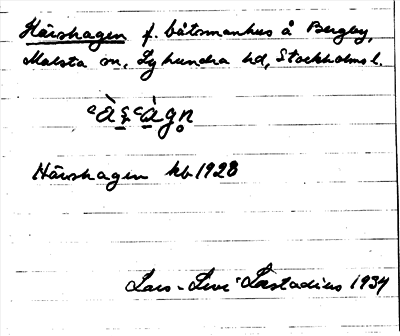 Härshagen f. båtsmanhus å Bergby,
Malsta sn, Lyhundra hd, Stockholms l.
Härshagen kb 1928
Lars-Levi Læstadius 1934